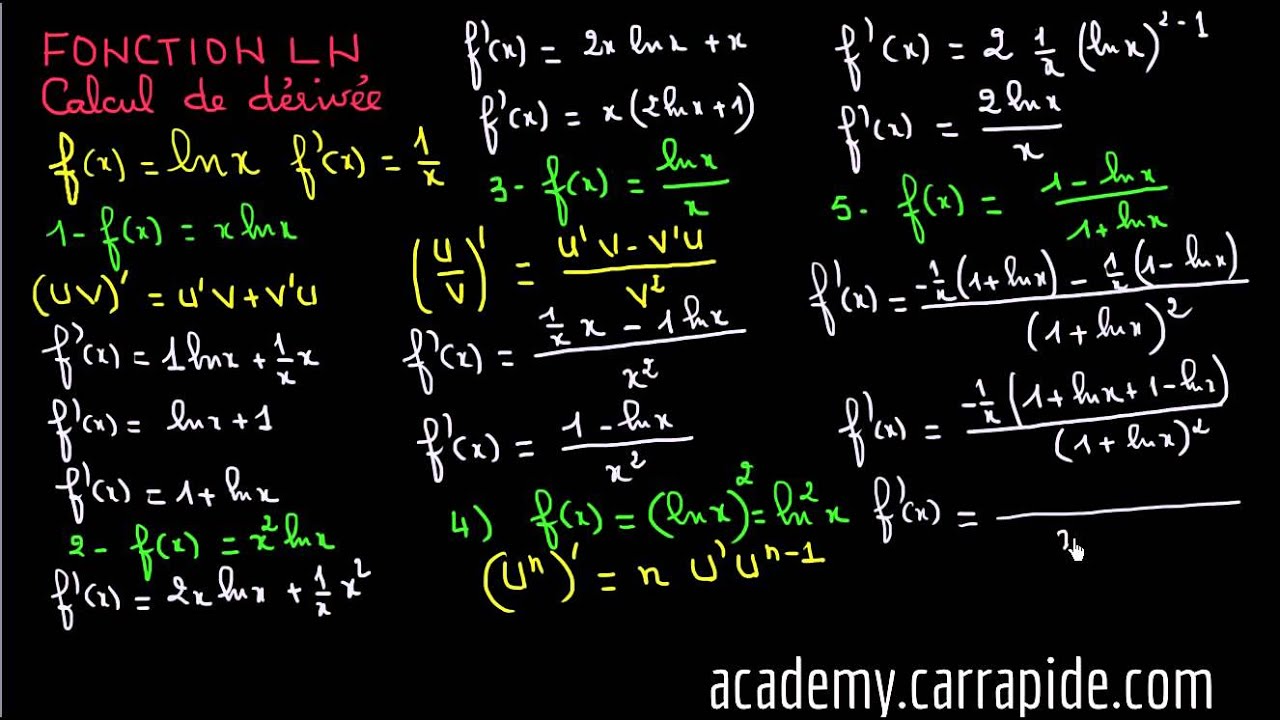 FONCTION LN
Calcul de dérivée
f(x) = lnx f'(x) = 1/x
1- f(x) = x lnx
(UV)' = U'V + V'U
f'(x) = 1 lnx + 1/x x
f'(x) = lnx + 1
f'(x) = 1 + lnx
2- f(x) = x² lnx
f'(x) = 2x lnx + 1/x x²
f'(x) = 2x lnx + x
f'(x) = x(2lnx + 1)
3- f(x) = lnx/x
(U/V)' = (U'V - V'U)/V²
f'(x) = (1/x x - 1 lnx)/x²
f'(x) = (1 - lnx)/x²
4) f(x) = (lnx)² = ln²x
(Uⁿ)' = n U' Uⁿ⁻¹
f'(x) = 2 1/x (lnx)²⁻¹
f'(x) = 2lnx/x
5- f(x) = (1 - lnx)/(1 + lnx)
f'(x) = (-1/x (1 + lnx) - 1/x (1 - lnx))/(1 + lnx)²
f'(x) = (-1/x (1 + lnx + 1 - lnx))/(1 + lnx)²
f'(x) =
academy.carrapide.com